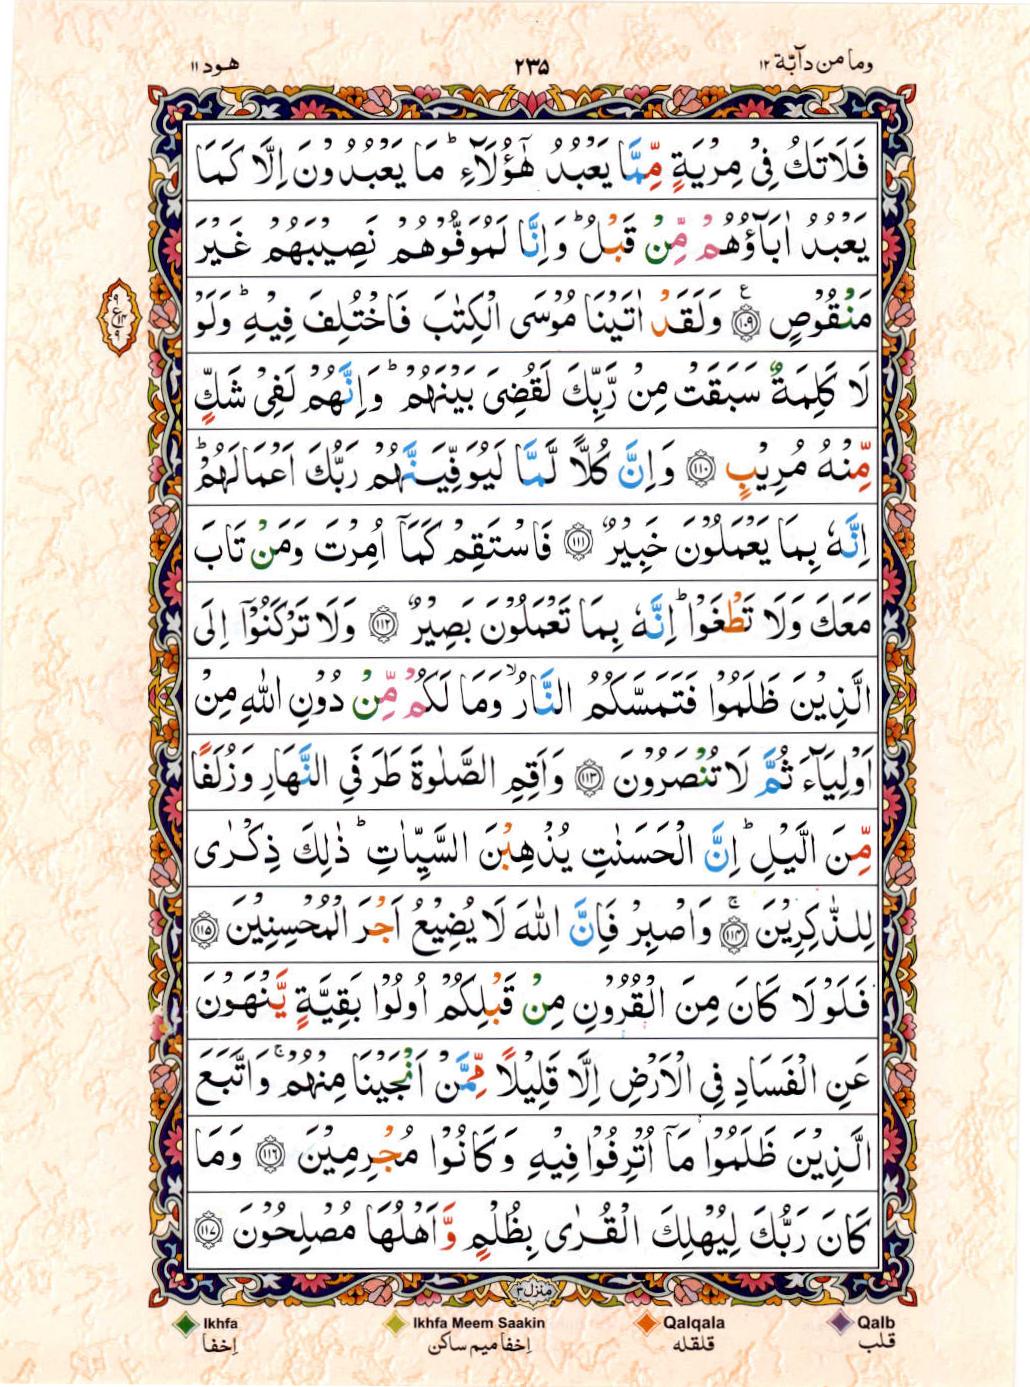 وما من دآبّة ١٢ ٢٣٥ هود ١١
فَلَا تَكُ فِىْ مِرْيَةٍ مِّمَّا يَعْبُدُ هٰٓؤُلَآءِ ؕ مَا يَعْبُدُوْنَ اِلَّا كَمَا
يَعْبُدُ اٰبَآؤُهُمْ مِّنْ قَبْلُ ؕ وَاِنَّا لَمُوَفُّوْهُمْ نَصِيْبَهُمْ غَيْرَ
مَنْقُوْصٍ ﴿۱۰۹﴾ ع وَلَقَدْ اٰتَيْنَا مُوْسَى الْكِتٰبَ فَاخْتُلِفَ فِيْهِ ؕ وَلَوْ
لَا كَلِمَةٌ سَبَقَتْ مِنْ رَّبِّكَ لَقُضِىَ بَيْنَهُمْ ؕ وَاِنَّهُمْ لَفِىْ شَكٍّ
مِّنْهُ مُرِيْبٍ ﴿۱۱۰﴾ وَاِنَّ كُلًّا لَّمَّا لَيُوَفِّيَنَّهُمْ رَبُّكَ اَعْمَالَهُمْ ؕ
اِنَّهٗ بِمَا يَعْمَلُوْنَ خَبِيْرٌ ﴿۱۱۱﴾ فَاسْتَقِمْ كَمَآ اُمِرْتَ وَمَنْ تَابَ
مَعَكَ وَلَا تَطْغَوْا ؕ اِنَّهٗ بِمَا تَعْمَلُوْنَ بَصِيْرٌ ﴿۱۱۲﴾ وَلَا تَرْكَنُوْٓا اِلَى
الَّذِيْنَ ظَلَمُوْا فَتَمَسَّكُمُ النَّارُ ۙ وَمَا لَكُمْ مِّنْ دُوْنِ اللّٰهِ مِنْ
اَوْلِيَآءَ ثُمَّ لَا تُنْصَرُوْنَ ﴿۱۱۳﴾ وَاَقِمِ الصَّلٰوةَ طَرَفَىِ النَّهَارِ وَزُلَفًا
مِّنَ الَّيْلِ ؕ اِنَّ الْحَسَنٰتِ يُذْهِبْنَ السَّيِّاٰتِ ؕ ذٰلِكَ ذِكْرٰى
لِلذّٰكِرِيْنَ ﴿۱۱۴﴾ ۚ وَاصْبِرْ فَاِنَّ اللّٰهَ لَا يُضِيْعُ اَجْرَ الْمُحْسِنِيْنَ ﴿۱۱۵﴾
فَلَوْ لَا كَانَ مِنَ الْقُرُوْنِ مِنْ قَبْلِكُمْ اُولُوْا بَقِيَّةٍ يَّنْهَوْنَ
عَنِ الْفَسَادِ فِى الْاَرْضِ اِلَّا قَلِيْلًا مِّمَّنْ اَنْجَيْنَا مِنْهُمْ ۚ وَاتَّبَعَ
الَّذِيْنَ ظَلَمُوْا مَآ اُتْرِفُوْا فِيْهِ وَكَانُوْا مُجْرِمِيْنَ ﴿۱۱۶﴾ وَمَا
كَانَ رَبُّكَ لِيُهْلِكَ الْقُرٰى بِظُلْمٍ وَّاَهْلُهَا مُصْلِحُوْنَ ﴿۱۱۷﴾
منزل ٣
Ikhfa Ikhfa Meem Saakin Qalqala Qalb
إخفا إخفا ميم ساكن قلقله قلب